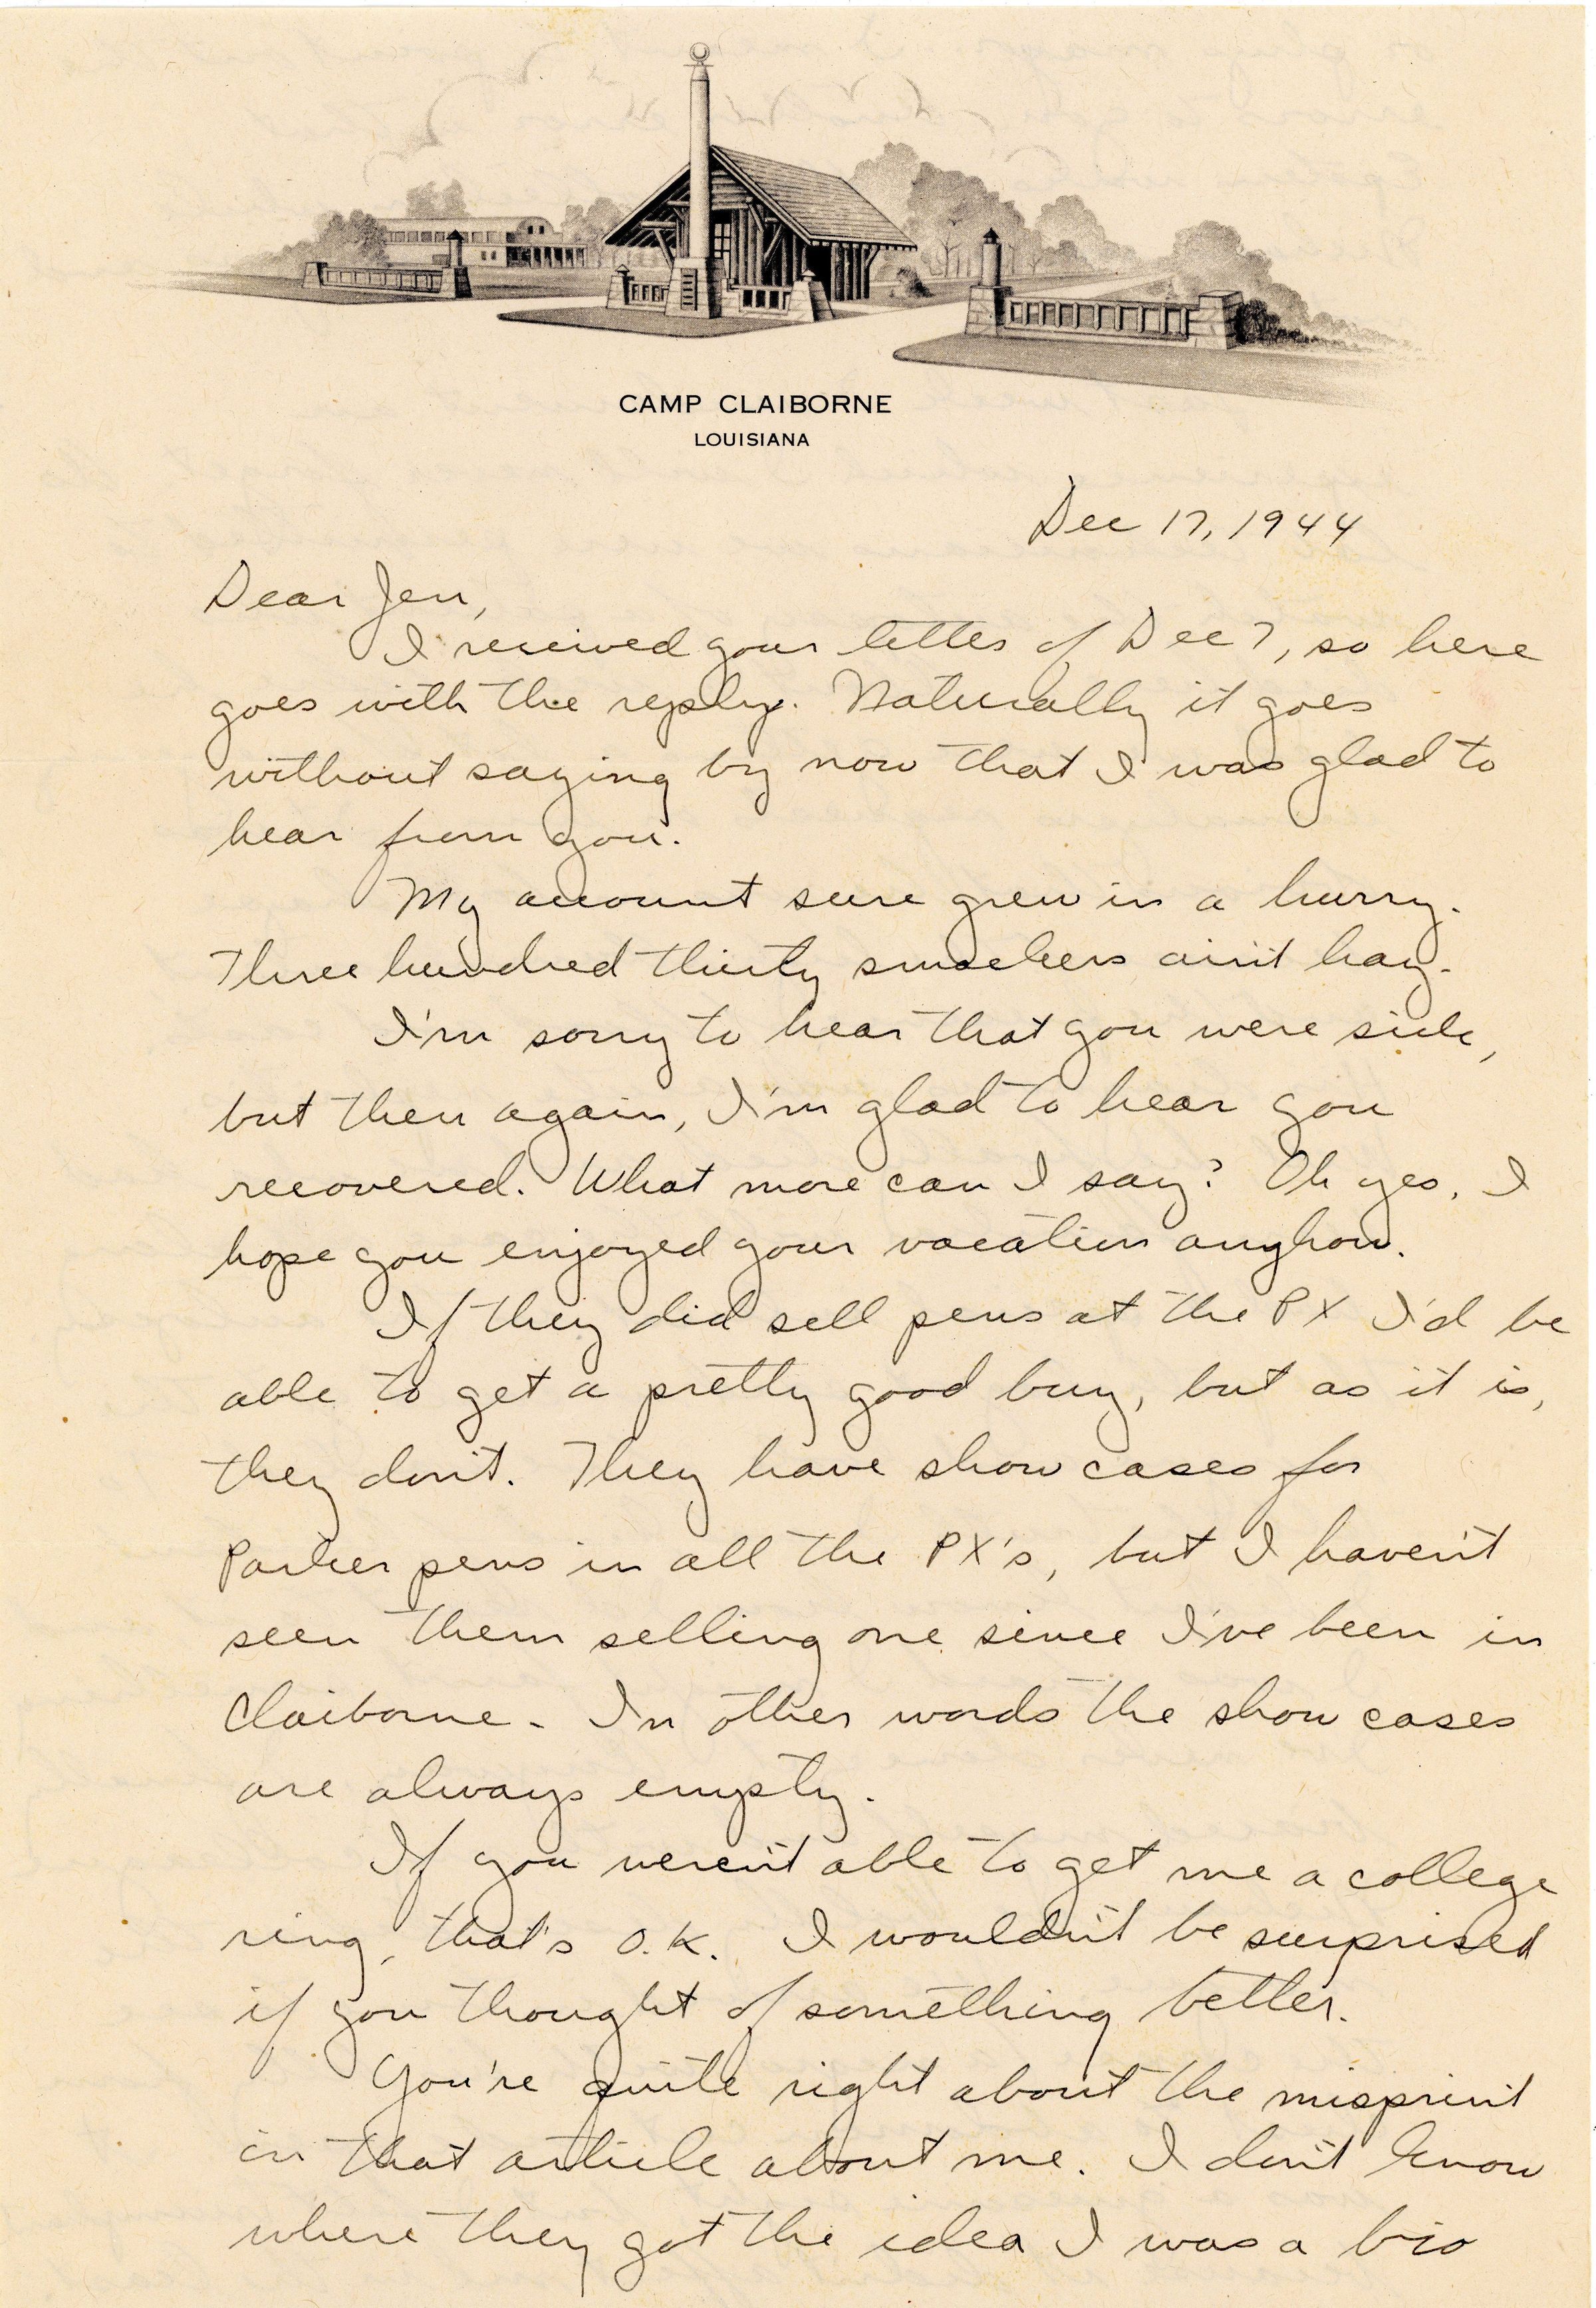 CAMP CLAIBORNE
LOUISIANA
Dec 17, 1944
Dear Jen,
I received your letter of Dec 7, so here
goes with the reply. Naturally it goes
without saying by now that I was glad to
hear from you.
My account sure grew in a hurry.
Three hundred thirty smackers ain't hay.
I'm sorry to hear that you were sick,
but then again, I'm glad to hear you
recovered. What more can I say? Oh yes, I
hope you enjoyed your vacation anyhow.
If they did sell pens at the PX I'd be
able to get a pretty good buy, but as it is,
they don't. They have show cases for
Parker pens in all the PX's, but I haven't
seen them selling one since I've been in
Claiborne. In other words the show cases
are always empty.
If you weren't able to get me a college
ring, that's O.K. I wouldn't be surprised
if you thought of something better.
You're quite right about the misprint
in that article about me. I don't know
where they got the idea I was a bio